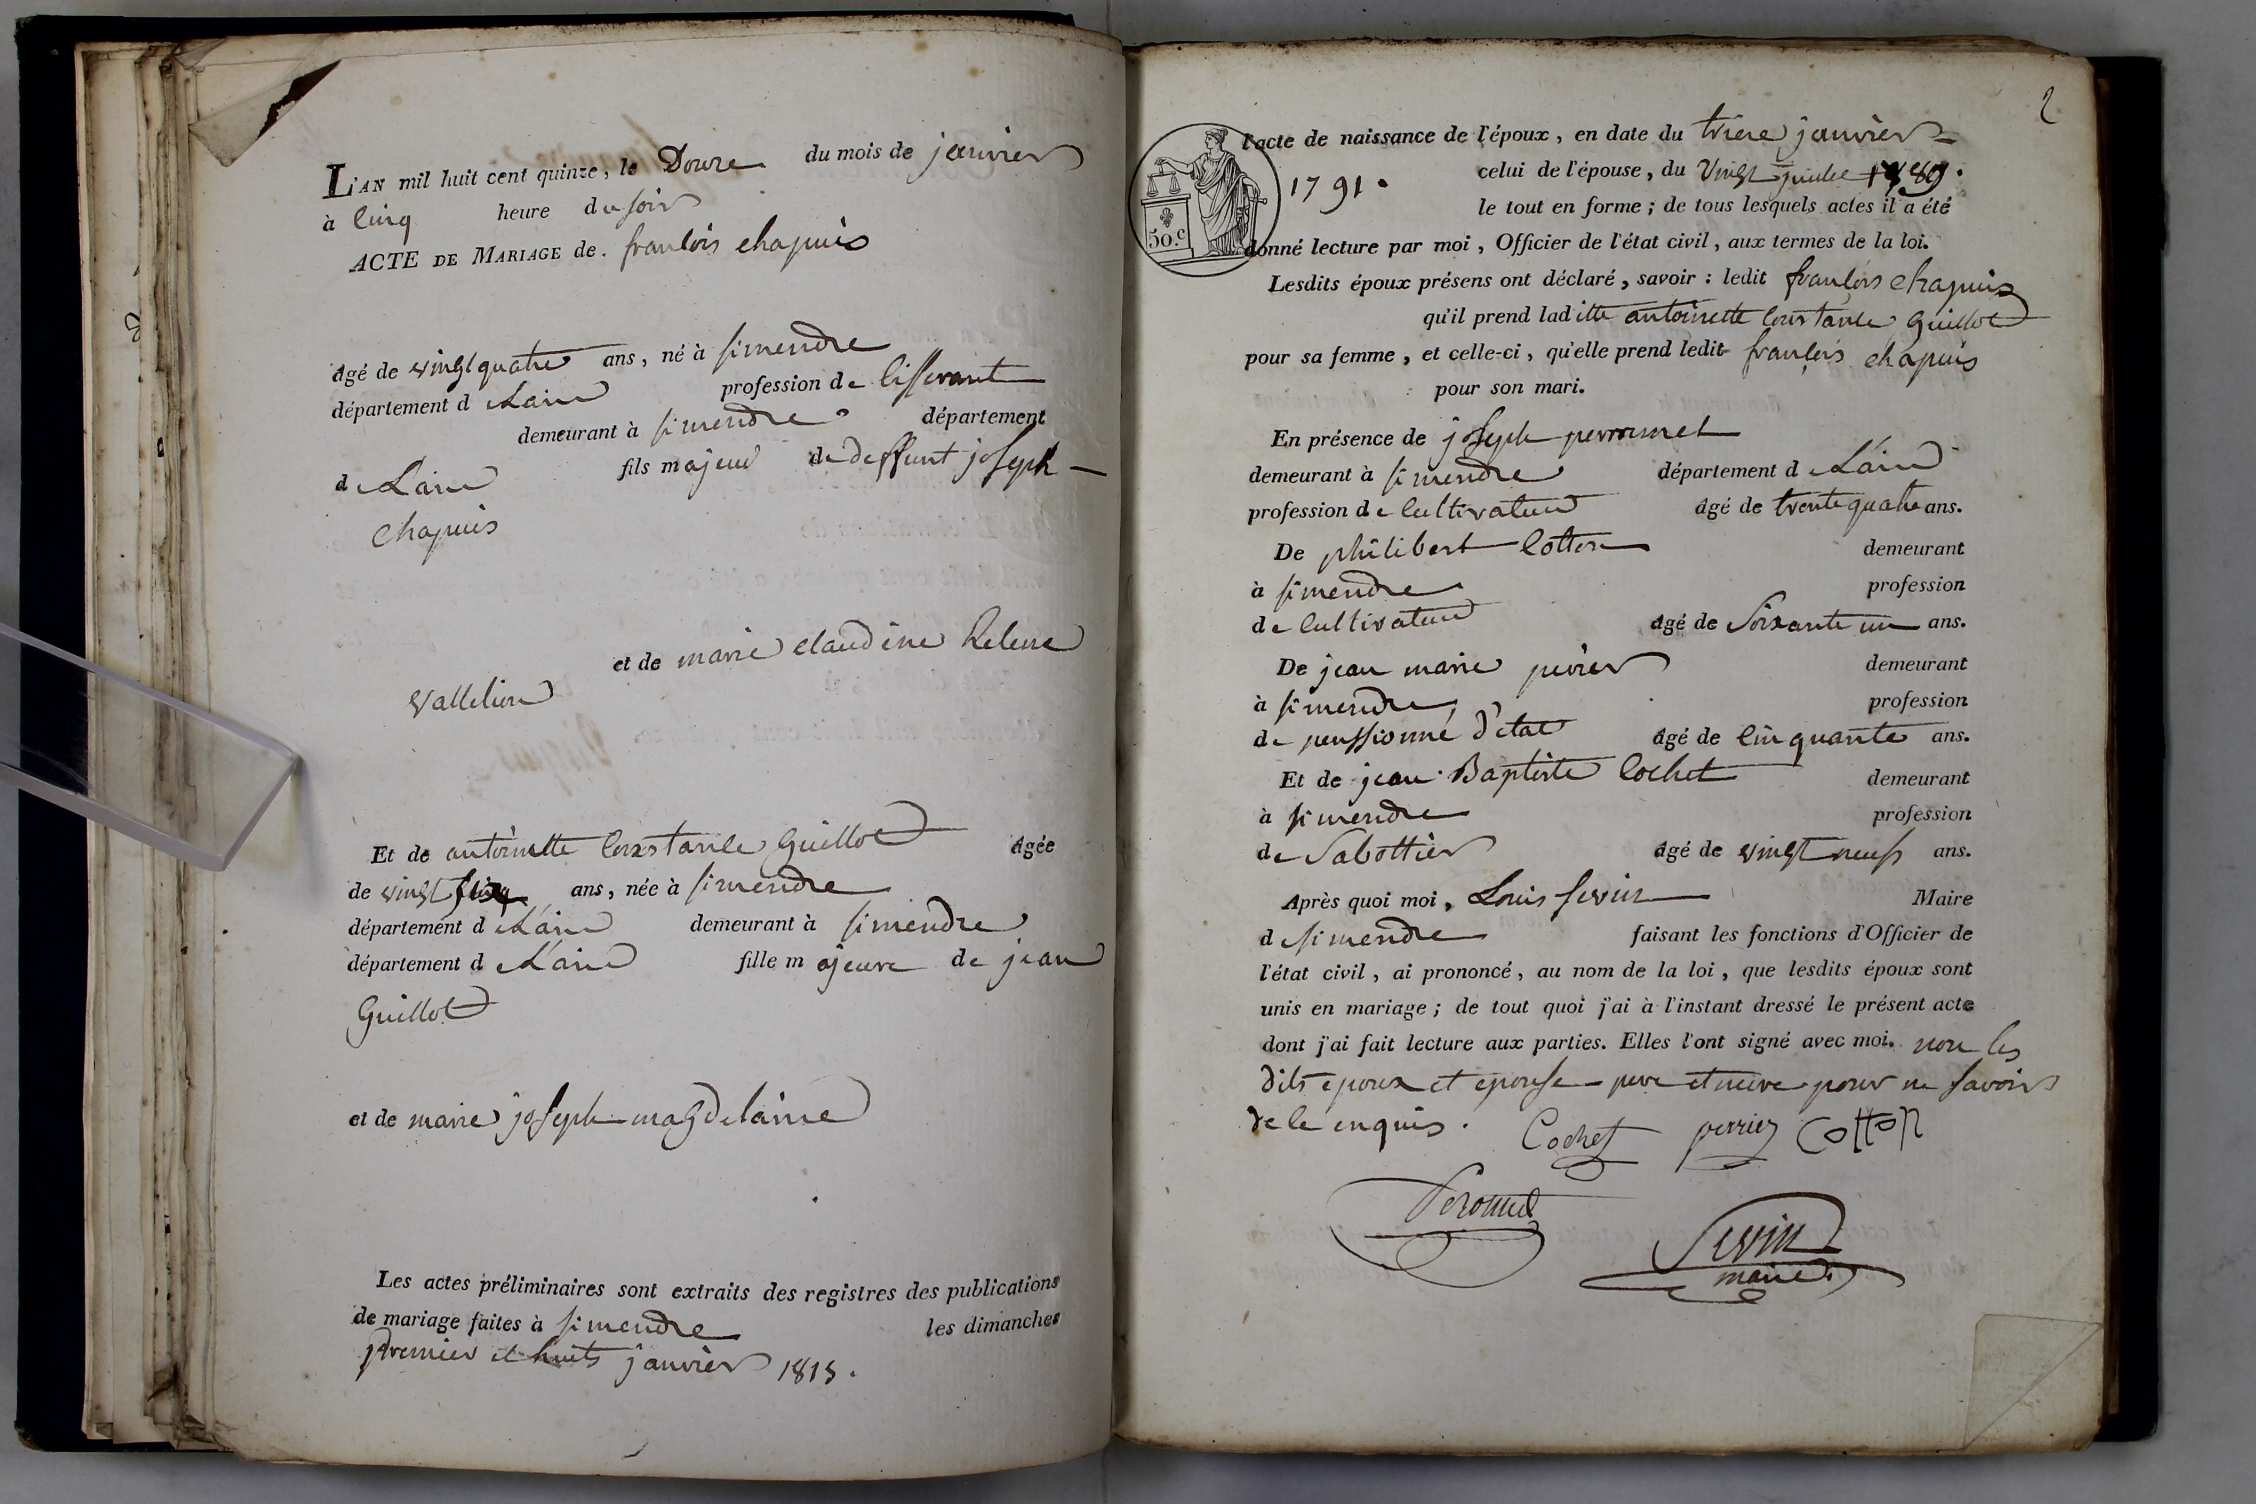 L'AN mil huit cent quinze, le Douze du mois de janvier
à cinq heure du soir
ACTE DE MARIAGE de. francois chapuis
âgé de vingt quatre ans, né à simendre
département d e Lain profession de tisserant
demeurant à simendre département
d e Lain fils majeur de deffunt joseph
chapuis
et de marie claudine helene
vattelion
Et de antoinette constance Guillot âgée
de vingt ans, née à simendre
département d e L'ain demeurant à simendre
département d e L'ain fille majeure de jean
Guillot
et de marie joseph magdelaine
Les actes préliminaires sont extraits des registres des publications
de mariage faites à simendre les dimanches
premier et huit janvier 1815.
2
l'acte de naissance de l'époux, en date du trieze janvier
1791. celui de l'épouse, du vingt 1789.
le tout en forme; de tous lesquels actes il a été
50.c
donné lecture par moi, Officier de l'état civil, aux termes de la loi.
Lesdits époux présens ont déclaré, savoir: ledit françois chapuis
qu'il prend laditte antoinette constance Guillot
pour sa femme, et celle-ci, qu'elle prend ledit françois chapuis
pour son mari.
En présence de joseph perroumet
demeurant à simendre département d e L'ain
profession de cultivateur âgé de trente quatre ans.
De philibert cotton demeurant
à simendre profession
de cultivateur âgé de soixante un ans.
De jean marie perier demeurant
à simendre profession
de penssionné d'etat âgé de cinquante ans.
Et de jean Baptiste cochet demeurant
à simendre profession
de sabottier âgé de vingt neuf ans.
Après quoi moi, Louis sevin Maire
de simendre faisant les fonctions d'Officier de
l'état civil, ai prononcé, au nom de la loi, que lesdits époux sont
unis en mariage; de tout quoi j'ai à l'instant dressé le présent acte
dont j'ai fait lecture aux parties. Elles l'ont signé avec moi. non les
dits epoux et epouse pere et mere pour ne savoir
de le enquis. Cochet perrier cotton
Peroumet
Sevin
maire